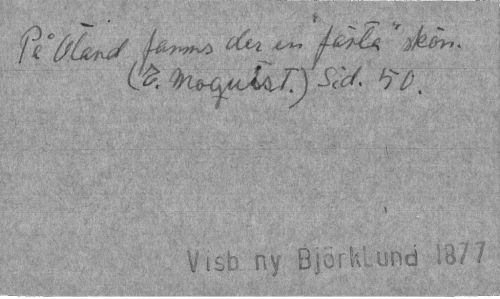 På Öland fanns der en "fästa" skön.
(E. Moquist.) Sid. 50.
Visb ny Björklund 1877